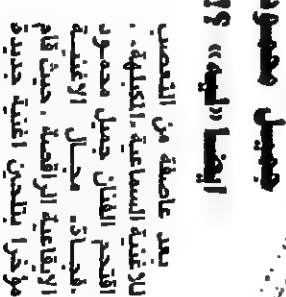 جميل محمود
ايضا «ليه» ؟؟
بعد عاصفة من التعصب
للاغنية السماعية .الكبلهة. .
اقتحم الفنان جميل محمود
.فجأة. مجال الاغنية
الايقاعية الراقصة ، حيث قام
مؤخرا بتلحين اغنية جديدة